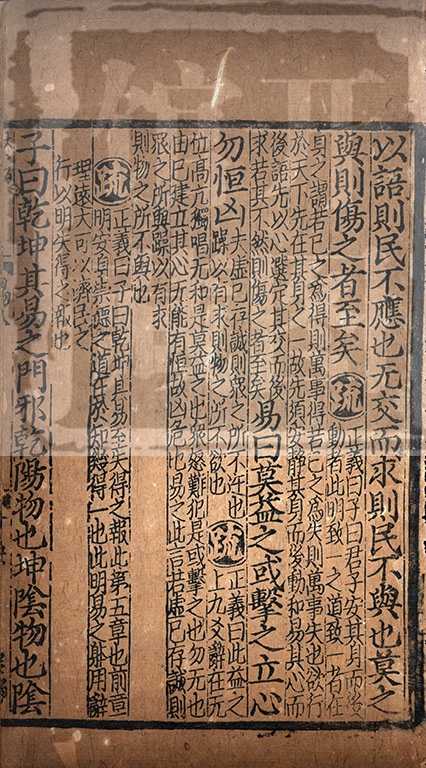 以語則民不應也无交而求則民不與也莫之
與則傷之者至矣 疏 正義曰子曰君子安其身而後
動者此明致一之道致一者在
身之謂若己之爲得則萬事得若己之爲失則萬事失也欲行
於天下先在其身之一故先須安靜其身而後動和易其心而
後語先以心選定其交而後
求若其不然則傷之者至矣 易曰莫益之或擊之立心
勿恒凶 夫虛己存誠則衆之所不迕也
躁以有求則物之所不欲也 疏 正義曰此益之
上九爻辭在无
位高亢獨唱无和是莫益之也衆怒難犯是或擊之也勿无也
由己建立其心无能有恒故凶危也易之此言若虛己存誠則
衆之所與躁以有求
則物之所不與也
疏 正義曰子曰乾坤其易至失得之報此第五章也前章
明安身崇德之道在於知幾得一也此明易之躰用辭
理遠大可以濟民之
行以明失得之報也
子曰乾坤其易之門邪乾陽物也坤陰物也陰